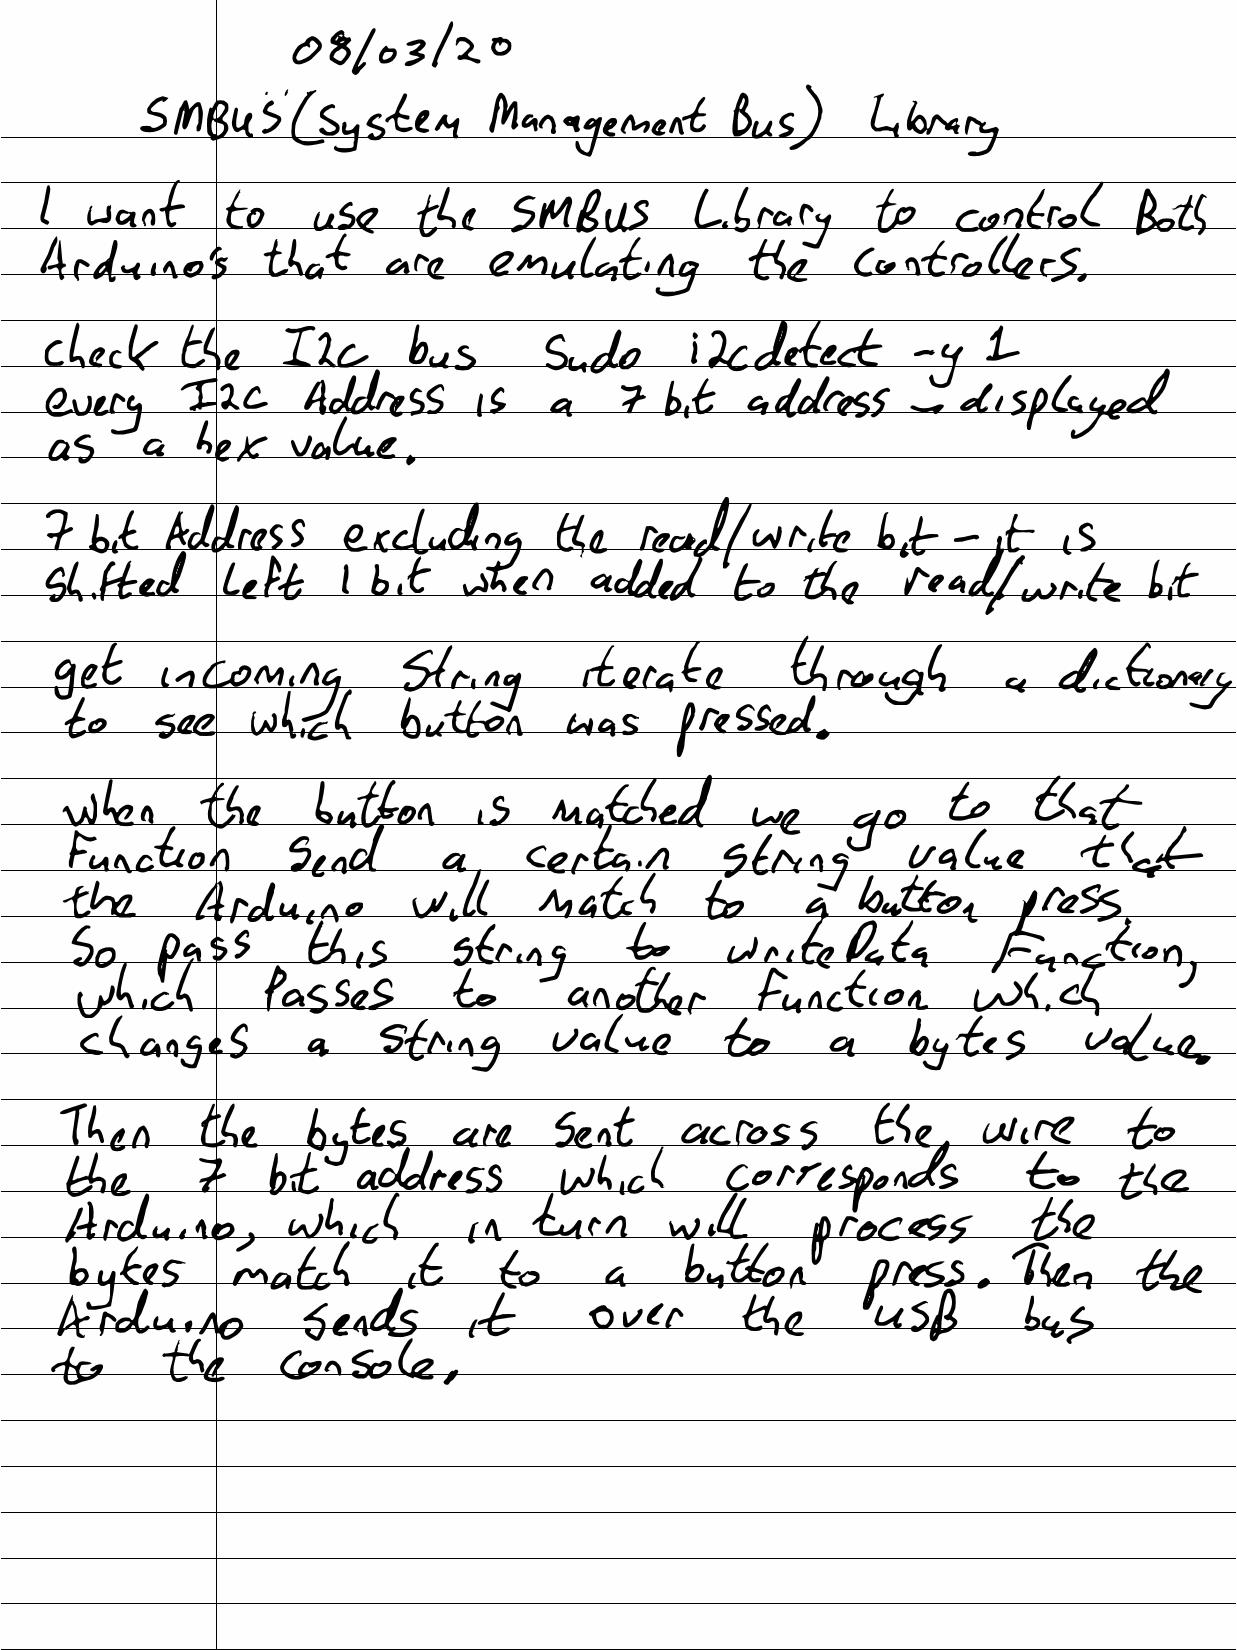 08/03/20
SMBUS (System Management Bus) Library
I want to use the SMBUS Library to control Both
Arduino's that are emulating the controllers.
check the I2c bus Sudo i2cdetect -y 1
every I2c Address is a 7 bit address - displayed
as a hex value.
7 bit Address excluding the read/write bit - it is
Shifted Left 1 bit when added to the read/write bit
get incoming String iterate through a dictionary
to see which button was pressed.
when the button is matched we go to that
Function Send a certain string value that
the Arduino will match to a button press.
So pass this string to writeData Function,
which Passes to another Function which
changes a string value to a bytes value.
Then the bytes are sent across the wire to
the 7 bit address which corresponds to the
Arduino, which in turn will process the
bytes match it to a button press. Then the
Arduino sends it over the USB bus
to the console.